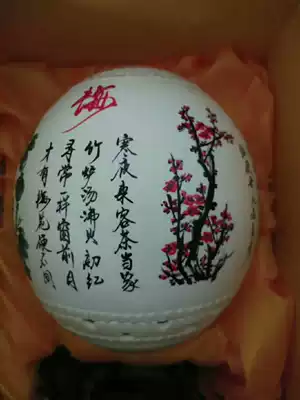 梅
寒夜来客茶当家
竹炉汤沸火初红
寻常一样窗前月
才有梅花便不同